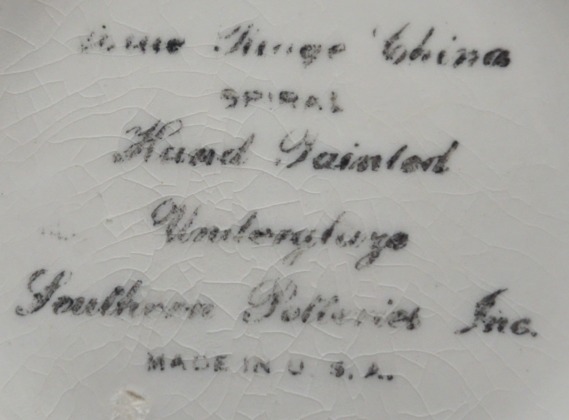 Blue Ridge China
SPIRAL
Hand Painted
Underglaze
Southern Potteries Inc.
MADE IN U.S.A.